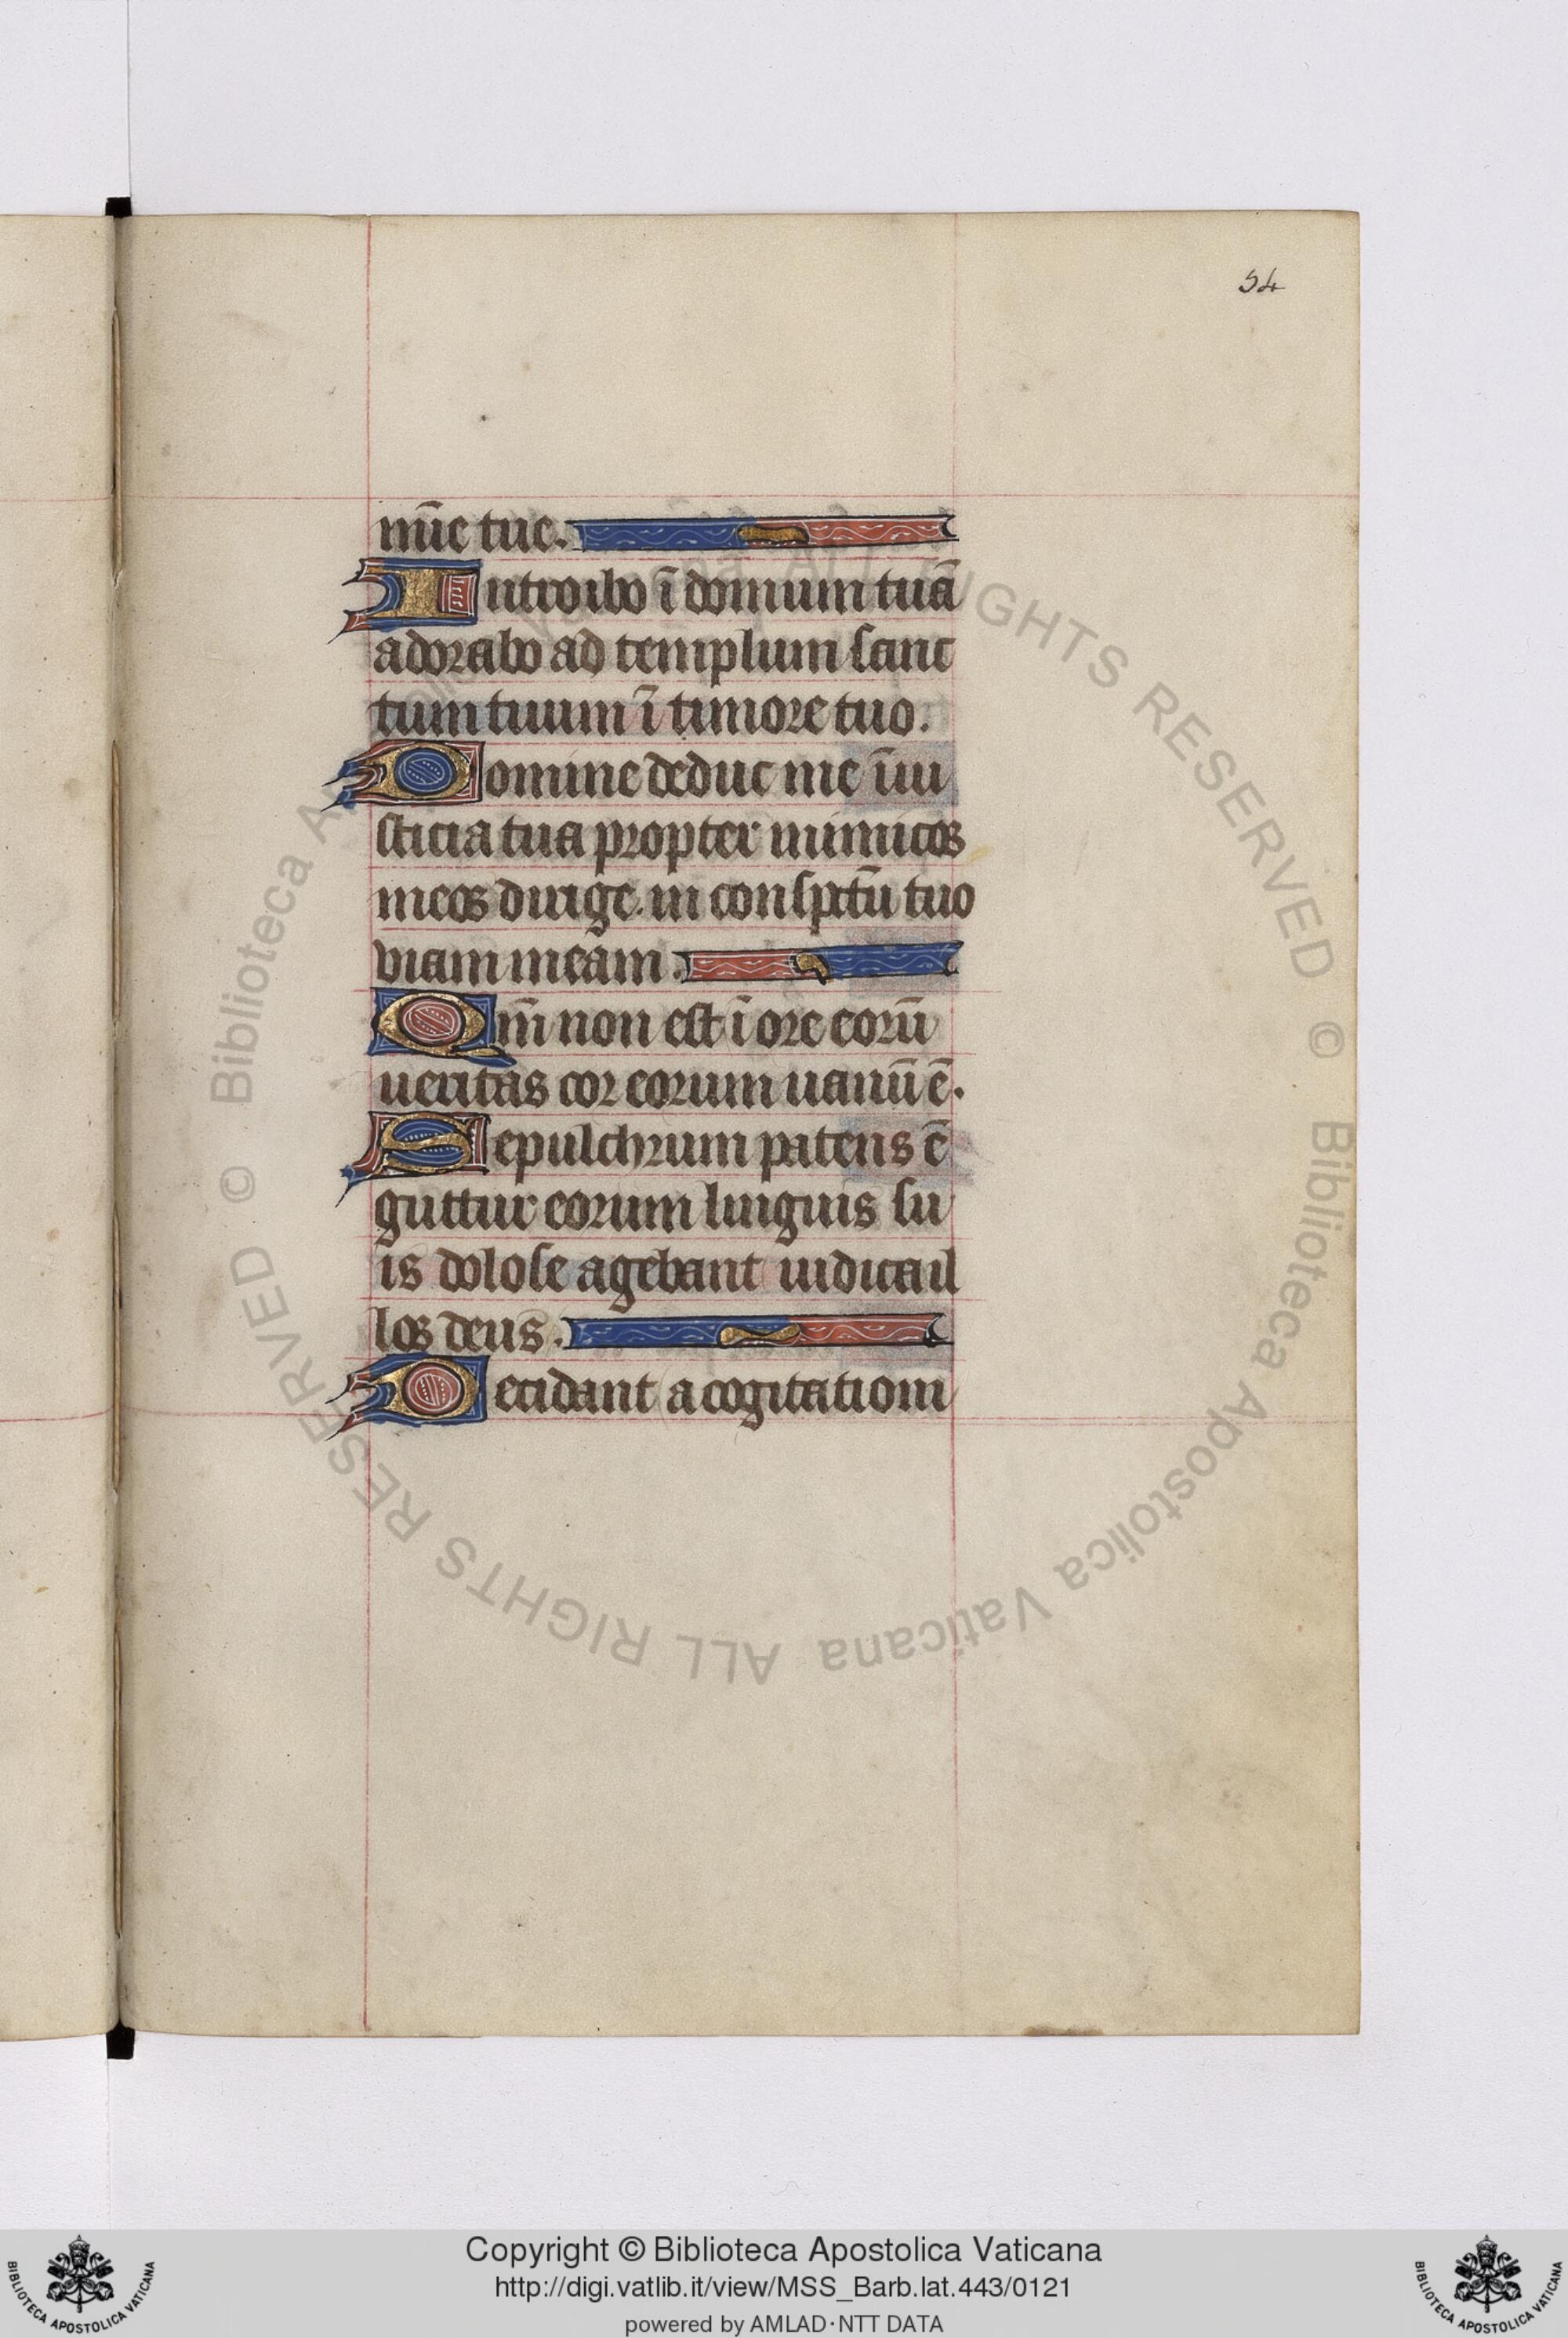 54
mīe tue.
Introibo ī domum tuā
adorabo ad templum sanc
tum tuum ī timore tuo.
Domine deduc me īiu
sticia tua propter inimicos
meos dirige in conspctū tuo
viam meam.
Qm̄ non est ī ore eorū
ueritas cor eorum uanū ē.
Sepulchrum patens ē
guttur eorum linguis su
is dolose agebant iudica il
los deus.
Decidant a cogitationi
© Biblioteca Apostolica Vaticana ALL RIGHTS RESERVED © Biblioteca Apostolica Vaticana ALL RIGHTS RESERVED
Copyright © Biblioteca Apostolica Vaticana
http://digi.vatlib.it/view/MSS_Barb.lat.443/0121
powered by AMLAD·NTT DATA
BIBLIOTECA APOSTOLICA VATICANA
BIBLIOTECA APOSTOLICA VATICANA